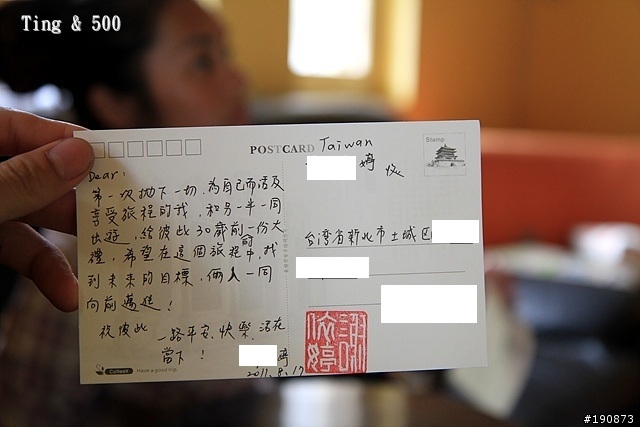 Ting & 500
POSTCARD Taiwan
Stamp
婷 收
Dear:
第一次拋下一切,為自己而活及
享受旅程的我,和另一半一同
出遊,給彼此30歲前一份大
禮,希望在這個旅程中,找
到未來的目標,倆人一同
向前邁進!
祝彼此
一路平安、快樂、活在
當下!
婷
2011.8.17
台湾省新北市土城区
Have a good trip.
#190873